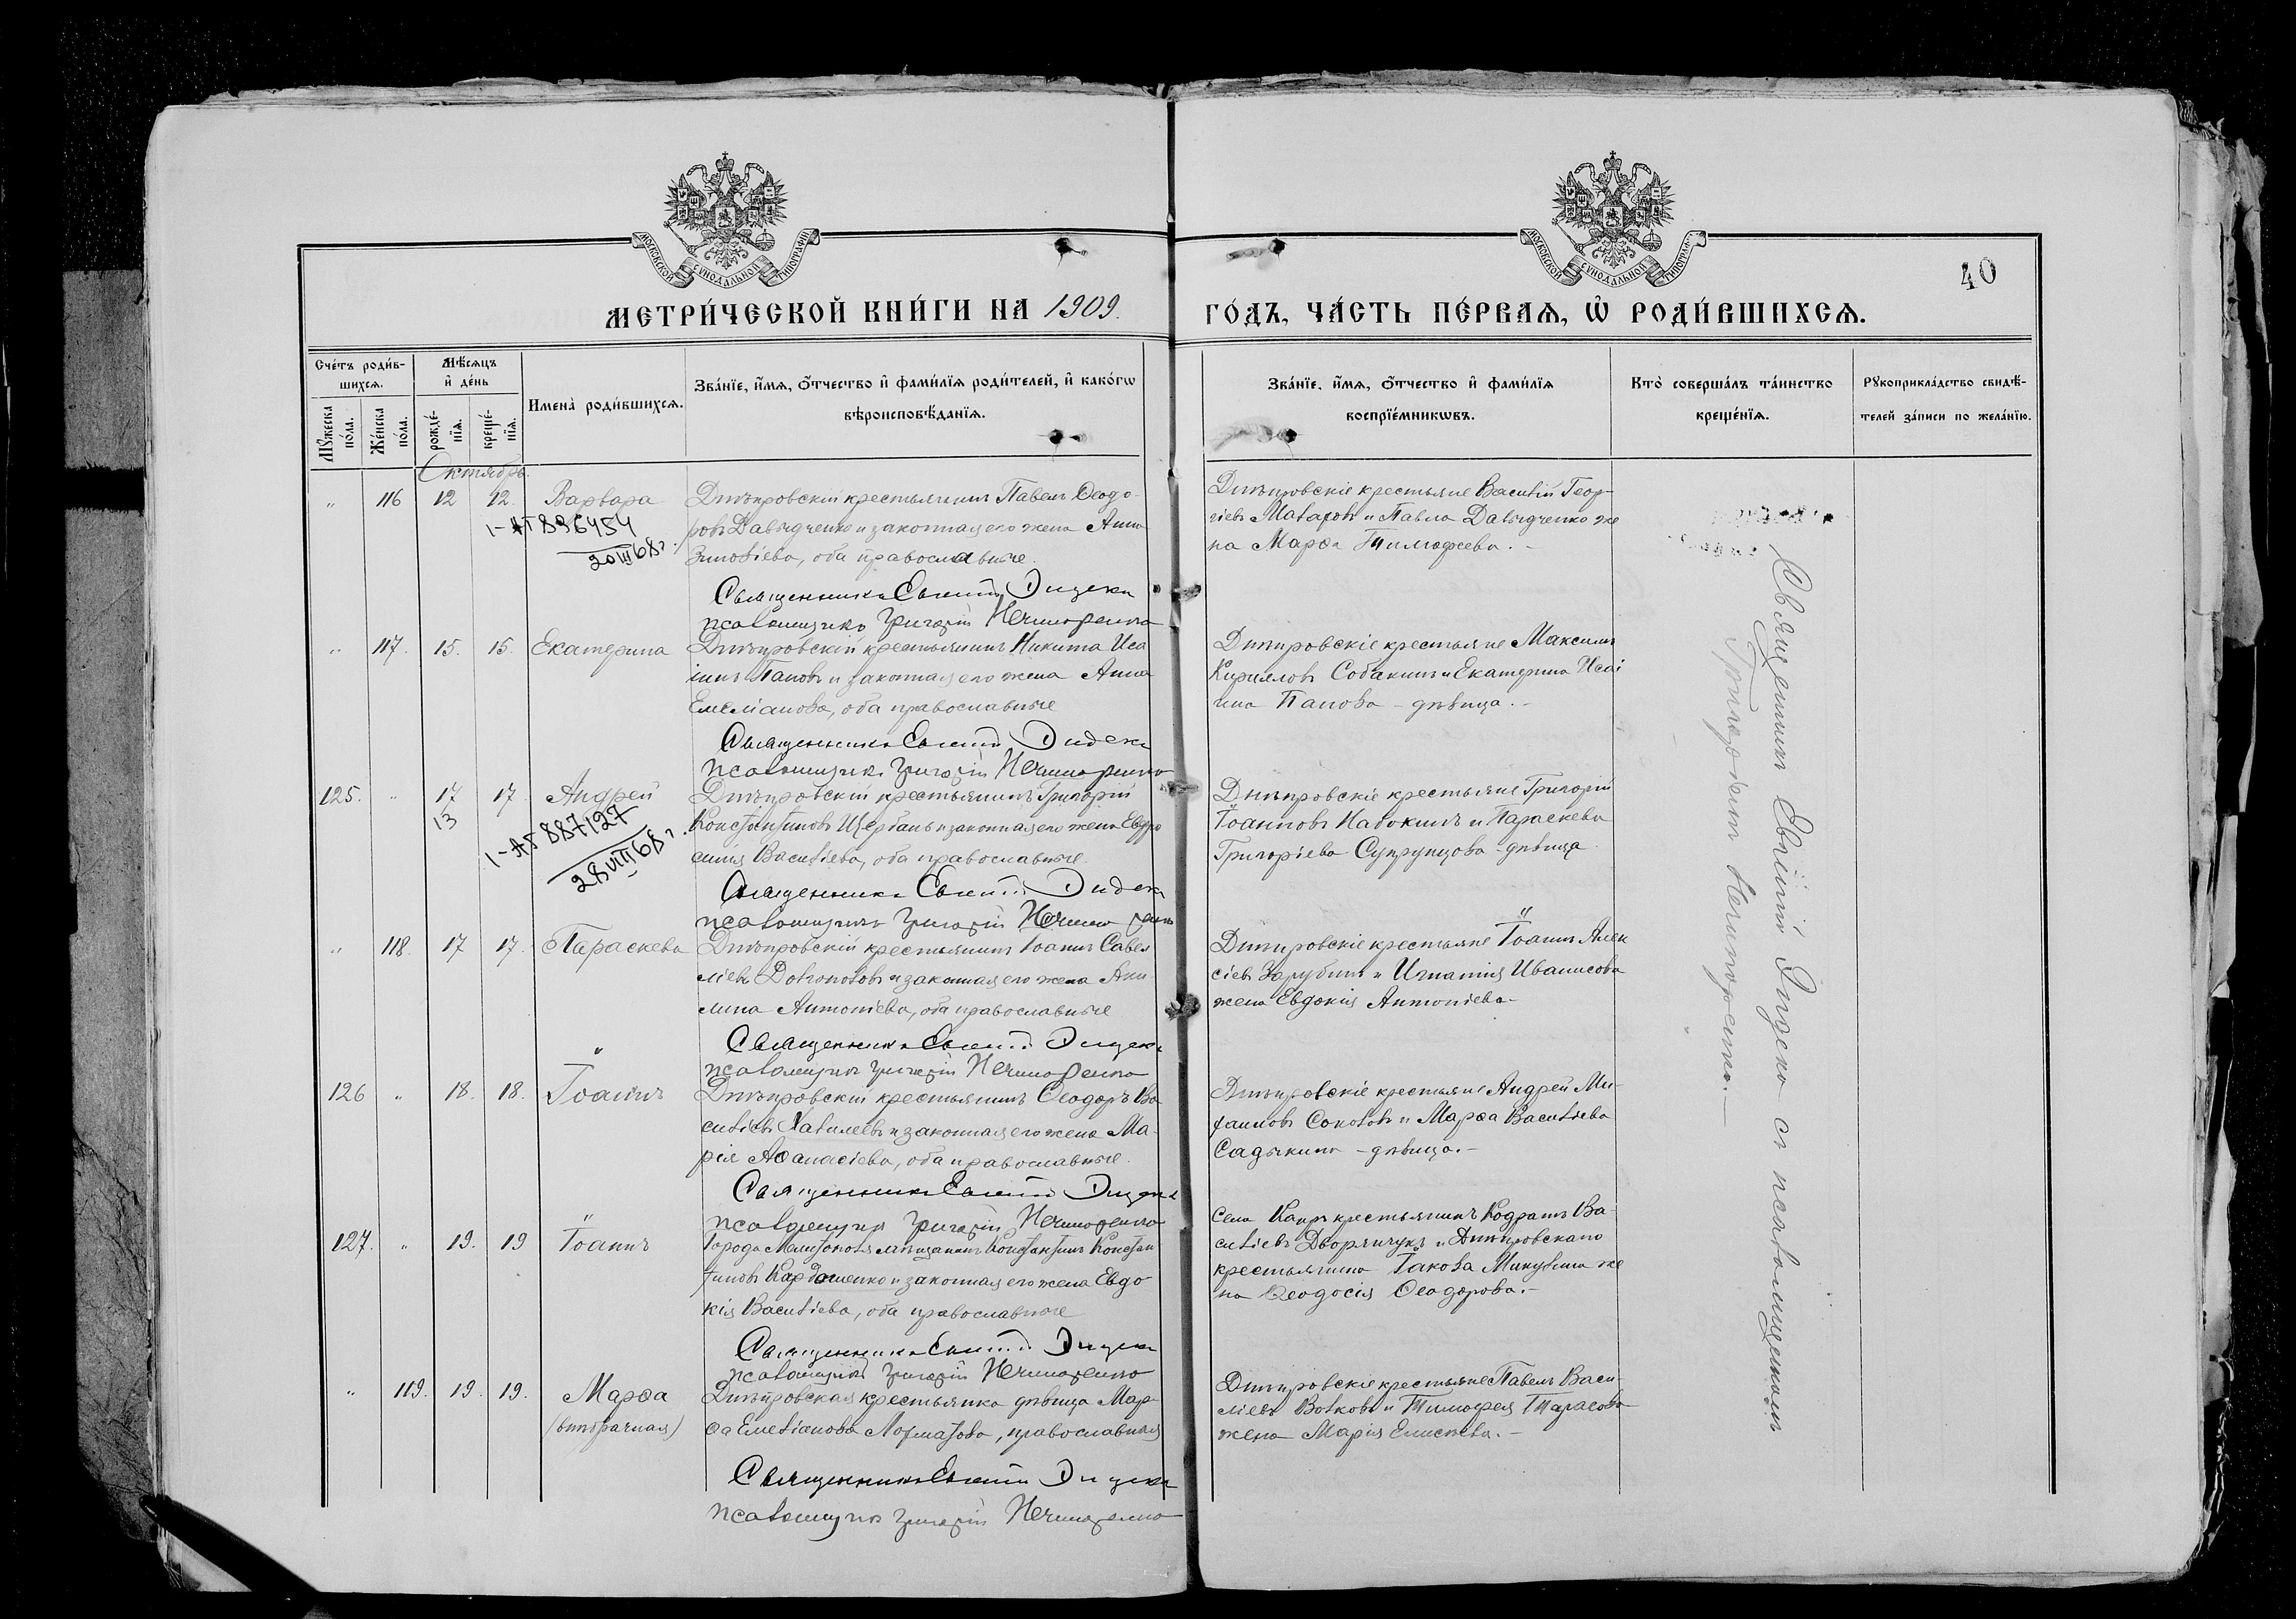 МОСКОВСКОЙ СѴНОДАЛЬНОЙ ТИПОГРАФІИ
МОСКОВСКОЙ СѴНОДАЛЬНОЙ
40
МЕТРИ́ЧЕСКОЙ КНИ́ГИ НА 1909.
ГО́ДЪ, ЧА́СТЬ ПЕ́РВАѦ, Ѡ҆ РОДИ́ВШИХСѦ.
Сче́тъ роди́в-
шихсѧ.
Мꙋ́жеска по́ла.
Же́нска по́ла.
Мѣ́сѧцъ
и҆ де́нь
рожде́-нїѧ.
креще́-нїѧ.
Имена̀ роди́вшихсѧ.
Зва́нїе, и҆́мѧ, ѻ҆́тчество и҆ фами́лїѧ роди́телей, и҆ како́гѡ
вѣроисповѣ́данїѧ.
Зва́нїе, и҆́мѧ, ѻ҆́тчество и҆ фами́лїѧ
воспрїе́мникѡвъ.
Кто̀ соверша́лъ та́инство
креще́нїѧ.
Рꙋкоприкла́дство свидѣ́-
телей за́писи по жела́нїю.
Октябрь.
" 116 12 12. Варвара
1-АГ 836454
20 III 68 г.
Днѣпровскій крестьянинъ Павелъ Ѳеодо-
ровъ Давыдченко и законная его жена Анна
Зиновіева, оба православные.
Священникъ Евѳимій Дидено
псаломщикъ Григорій Нечипоренко
Днѣпровскіе крестьяне Василій Геор-
гіевъ Макаровъ и Павла Давыдченко же
на Марѳа Тимоѳеева. -
" 117. 15. 15. Екатерина
Днѣпровскій крестьянинъ Никита Иса
іинъ Пановъ и законная его жена Анна
Емеліанова, оба православные
Священникъ Евѳимій Дидено
псаломщикъ Григорій Нечипоренко
Днѣпровскіе крестьяне Максимъ
Кирилловъ Собакинъ и Екатерина Исаі
ина Панова - дѣвица. -
125. " 17 17. Андрей
13
1-АГ 887127
28 VIII 68 г.
Днѣпровскій крестьянинъ Григорій
Константиновъ Щербань и законная его жена Евфро
синія Василіева, оба православные.
Священникъ Евѳимій Дидено
псаломщикъ Григорій Нечипоренко
Днѣпровскіе крестьяне Григорій
Іоанновъ Набокинъ и Параскева
Григоріева Супрунцова - дѣвица
" 118. 17 17. Параскева
Днѣпровскій крестьянинъ Іоаннъ Савел
ліевъ и законная его жена Аки
лина Антоніева, оба православные
Священникъ Евѳимій Дидено
псаломщикъ Григорій Нечипоренко
Днѣпровскіе крестьяне Іоаннъ Алек
сіевъ Зарубинъ и Игнатія Иванисова
жена Евдокія Антоніева -
126 " 18. 18. Іоаннъ
Днѣпровскій крестьянинъ Ѳеодоръ Ва
силіевъ и законная его жена Ма-
рія Аѳанасіева, оба православные.
Священникъ Евѳимій Дидено
псаломщикъ Григорій Нечипоренко
Днѣпровскіе крестьяне Андрей Ми-
Соколовъ и Марѳа Василіева
Садыкина - дѣвица. -
127. " 19. 19 Іоаннъ
Города Мелитополя мѣщанинъ Константинъ Констан
тиновъ и законная его жена Евдо
кія Василіева, оба православные
Священникъ Евѳимій Дидено
псаломщикъ Григорій Нечипоренко
Села Каиръ крестьянинъ Кодратъ Ва-
силіевъ Дворянчукъ и Днѣпровскаго
крестьянина Іакова Микулина же
на Ѳеодосія Ѳеодорова. -
" 119. 19. 19. Марѳа
(внѣбрачная)
Днѣпровская крестьянка дѣвица Мар-
ѳа Емеліанова Лормазова, православная
Священникъ Евѳимій Дидено
псаломщикъ Григорій Нечипоренко
Днѣпровскіе крестьяне Павелъ Васи-
ліевъ Волковъ и Тимоѳея Тарасова
жена Марія Елисѣева. -
Священникъ Евѳимій Дидено съ псаломщикомъ
Григоріемъ Нечипоренко. -